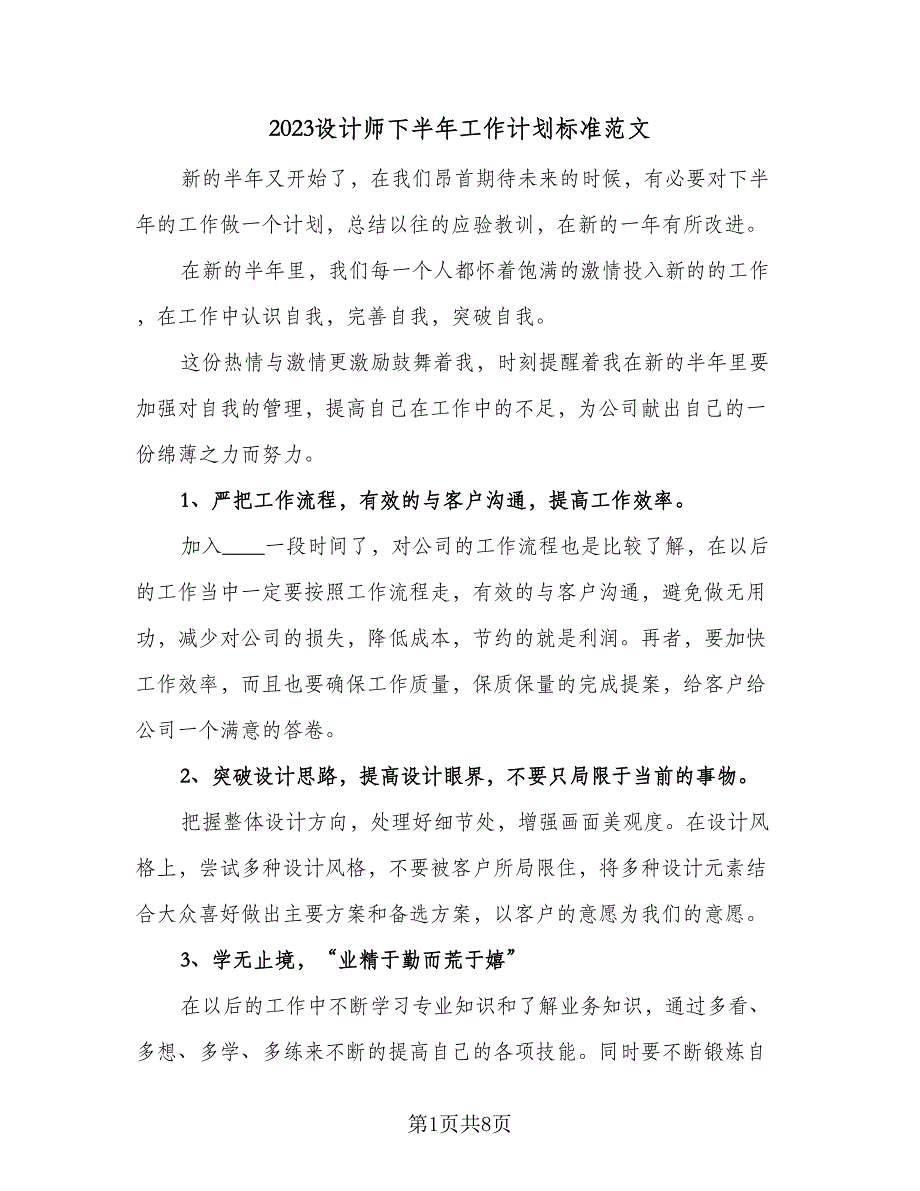 2023设计师下半年工作计划标准范文
新的半年又开始了，在我们昂首期待未来的时候，有必要对下半
年的工作做一个计划，总结以往的应验教训，在新的一年有所改进。
在新的半年里，我们每一个人都怀着饱满的激情投入新的的工作
，在工作中认识自我，完善自我，突破自我。
这份热情与激情更激励鼓舞着我，时刻提醒着我在新的半年里要
加强对自我的管理，提高自己在工作中的不足，为公司献出自己的一
份绵薄之力而努力。
1、严把工作流程，有效的与客户沟通，提高工作效率。
加入____一段时间了，对公司的工作流程也是比较了解，在以后
的工作当中一定要按照工作流程走，有效的与客户沟通，避免做无用
功，减少对公司的损失，降低成本，节约的就是利润。再者，要加快
工作效率，而且也要确保工作质量，保质保量的完成提案，给客户给
公司一个满意的答卷。
2、突破设计思路，提高设计眼界，不要只局限于当前的事物。
把握整体设计方向，处理好细节处，增强画面美观度。在设计风
格上，尝试多种设计风格，不要被客户所局限住，将多种设计元素结
合大众喜好做出主要方案和备选方案，以客户的意愿为我们的意愿。
3、学无止境，“业精于勤而荒于嬉”
在以后的工作中不断学习专业知识和了解业务知识，通过多看、
多想、多学、多练来不断的提高自己的各项技能。同时要不断锻炼自
第1页共8页